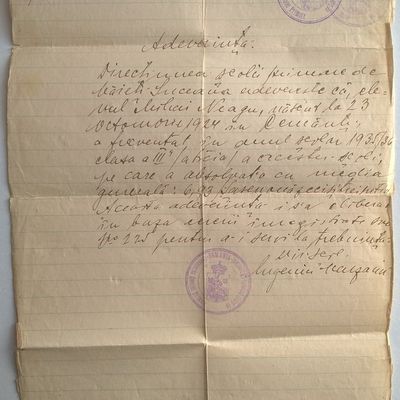 Adeverință.
Direcțiunea școlii primare de
băieți Suceava adeverește că, ele-
vul Mihai Neagu, născut la 23
Octomvrie 1924 în Cernăuți
a frecventat în anul școlar 1935/36
clasa a III a (atreia) a acestei școli,
pe care a absolvat-o cu media
generală: 6,93
Această adeverință i s'a eliberat
în baza cererii înregistrate
No 225 pentru a-i servi la trebuință.
Director,
Eugeniu